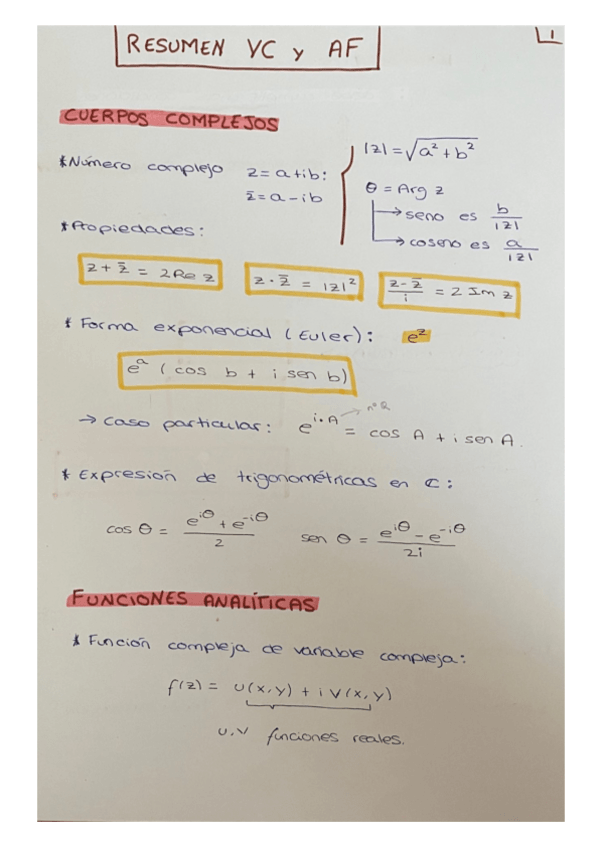 RESUMEN VC y AF
1
CUERPOS COMPLEJOS
*Número complejo z = a+ib:
z̄ = a - ib
|z| = √(a² + b²)
θ = Arg z
→ seno es b/|z|
→ coseno es a/|z|
*Propiedades:
z + z̄ = 2 Re z
z · z̄ = |z|²
(z - z̄)/i = 2 Im z
* Forma exponencial (Euler): e^z
e^a (cos b + i sen b)
→ caso particular: e^(i·A) = cos A + i sen A.
→ nº R
* Expresión de trigonométricas en ℂ:
cos θ = (e^(iθ) + e^(-iθ))/2
sen θ = (e^(iθ) - e^(-iθ))/2i
FUNCIONES ANALÍTICAS
* Función compleja de variable compleja:
f(z) = u(x,y) + i v(x,y)
u,v funciones reales.